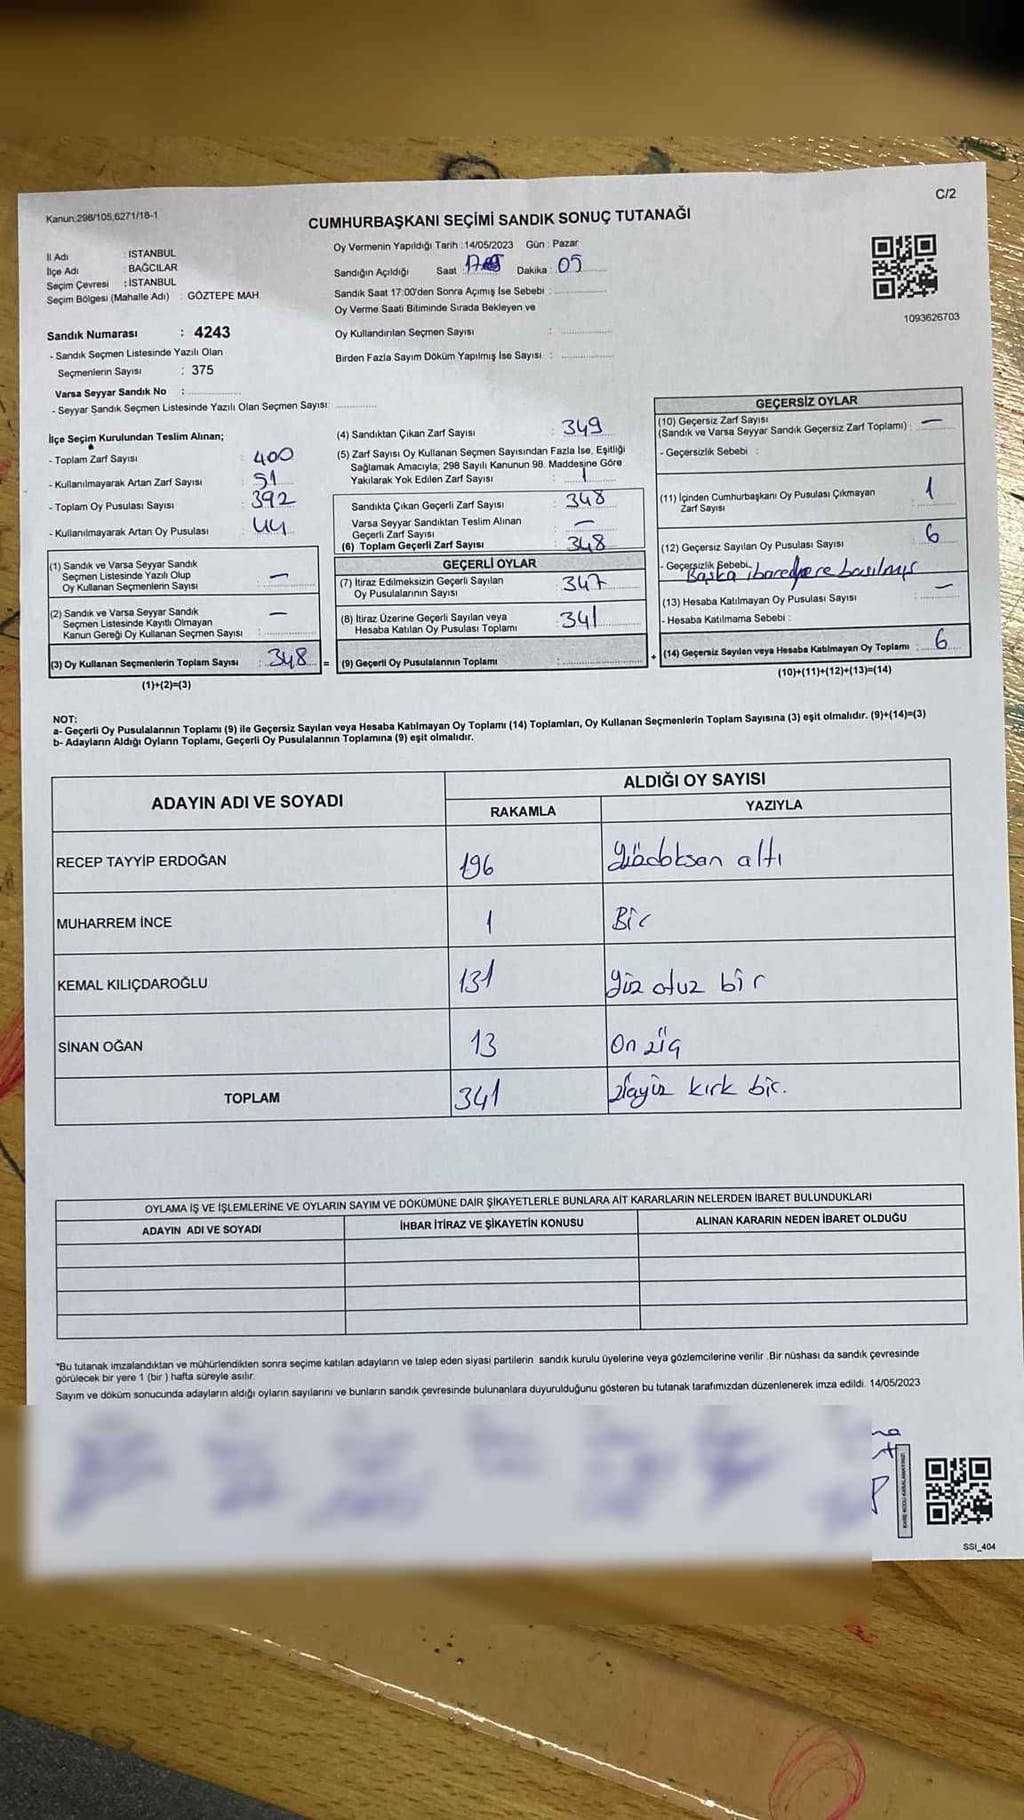 C/2
Kanun:298/105,6271/18-1
CUMHURBAŞKANI SEÇİMİ SANDIK SONUÇ TUTANAĞI
İl Adı : İSTANBUL
İlçe Adı : BAĞCILAR
Seçim Çevresi : İSTANBUL
Seçim Bölgesi (Mahalle Adı) : GÖZTEPE MAH
Sandık Numarası : 4243
- Sandık Seçmen Listesinde Yazılı Olan
Seçmenlerin Sayısı : 375
Varsa Seyyar Sandık No :
- Seyyar Sandık Seçmen Listesinde Yazılı Olan Seçmen Sayısı:
Oy Vermenin Yapıldığı Tarih :14/05/2023 Gün : Pazar
Sandığın Açıldığı Saat Dakika : 05
Sandık Saat 17:00'den Sonra Açımış İse Sebebi :
Oy Verme Saati Bitiminde Sırada Bekleyen ve
Oy Kullandırılan Seçmen Sayısı :
Birden Fazla Sayım Döküm Yapılmış İse Sayısı :
1093626703
İlçe Seçim Kurulundan Teslim Alınan;
- Toplam Zarf Sayısı : 400
- Kullanılmayarak Artan Zarf Sayısı : 51
- Toplam Oy Pusulası Sayısı : 392
- Kullanılmayarak Artan Oy Pusulası : 44
(1) Sandık ve Varsa Seyyar Sandık
Seçmen Listesinde Yazılı Olup
Oy Kullanan Seçmenlerin Sayısı : —
(2) Sandık ve Varsa Seyyar Sandık
Seçmen Listesinde Kayıtlı Olmayan
Kanun Gereği Oy Kullanan Seçmen Sayısı : —
(3) Oy Kullanan Seçmenlerin Toplam Sayısı : 348 =
(1)+(2)=(3)
(4) Sandıktan Çıkan Zarf Sayısı : 349
(5) Zarf Sayısı Oy Kullanan Seçmen Sayısından Fazla İse, Eşitliği
Sağlamak Amacıyla, 298 Sayılı Kanunun 98. Maddesine Göre
Yakılarak Yok Edilen Zarf Sayısı : 1
Sandıkta Çıkan Geçerli Zarf Sayısı : 348
Varsa Seyyar Sandıktan Teslim Alınan
Geçerli Zarf Sayısı : —
(6) Toplam Geçerli Zarf Sayısı : 348
GEÇERLİ OYLAR
(7) İtiraz Edilmeksizin Geçerli Sayılan
Oy Pusulalarının Sayısı : 347
(8) İtiraz Üzerine Geçerli Sayılan veya
Hesaba Katılan Oy Pusulası Toplamı : 341
(9) Geçerli Oy Pusulalarının Toplamı : +
GEÇERSİZ OYLAR
(10) Geçersiz Zarf Sayısı
(Sandık ve Varsa Seyyar Sandık Geçersiz Zarf Toplamı) : —
- Geçersizlik Sebebi :
(11) İçinden Cumhurbaşkanı Oy Pusulası Çıkmayan
Zarf Sayısı 1
(12) Geçersiz Sayılan Oy Pusulası Sayısı : 6
- Geçersizlik Sebebi
Başka ibare yere basılmış
(13) Hesaba Katılmayan Oy Pusulası Sayısı : —
- Hesaba Katılmama Sebebi :
(14) Geçersiz Sayılan veya Hesaba Katılmayan Oy Toplamı : 6
(10)+(11)+(12)+(13)=(14)
NOT:
a- Geçerli Oy Pusulalarının Toplamı (9) ile Geçersiz Sayılan veya Hesaba Katılmayan Oy Toplamı (14) Toplamları, Oy Kullanan Seçmenlerin Toplam Sayısına (3) eşit olmalıdır. (9)+(14)=(3)
b- Adayların Aldığı Oyların Toplamı, Geçerli Oy Pusulalarının Toplamına (9) eşit olmalıdır.
ADAYIN ADI VE SOYADI ALDIĞI OY SAYISI
RAKAMLA YAZIYLA
RECEP TAYYİP ERDOĞAN 196 yüzdoksan altı
MUHARREM İNCE 1 Bir
KEMAL KILIÇDAROĞLU 131 yüz otuz bir
SİNAN OĞAN 13 On üç
TOPLAM 341 üçyüz kırk bir.
OYLAMA İŞ VE İŞLEMLERİNE VE OYLARIN SAYIM VE DÖKÜMÜNE DAİR ŞİKAYETLERLE BUNLARA AİT KARARLARIN NELERDEN İBARET BULUNDUKLARI
ADAYIN ADI VE SOYADI İHBAR İTİRAZ VE ŞİKAYETİN KONUSU ALINAN KARARIN NEDEN İBARET OLDUĞU
*Bu tutanak imzalandıktan ve mühürlendikten sonra seçime katılan adayların ve talep eden siyasi partilerin sandık kurulu üyelerine veya gözlemcilerine verilir .Bir nüshası da sandık çevresinde
görülecek bir yere 1 (bir ) hafta süreyle asılır.
Sayım ve döküm sonucunda adayların aldığı oyların sayılarını ve bunların sandık çevresinde bulunanlara duyurulduğunu gösteren bu tutanak tarafımızdan düzenlenerek imza edildi. 14/05/2023
SSI_404